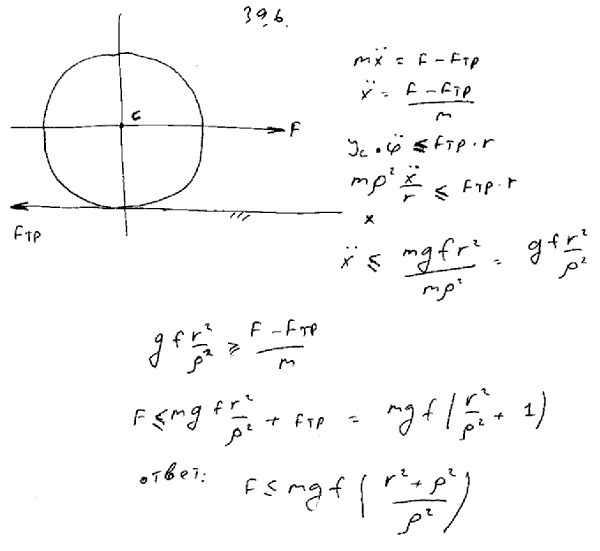 39.6.
C
F
Fтр
mẍ = F - Fтр
ẍ = (F - Fтр)/m
J_c · φ̈ ≤ Fтр · r
mρ² ẍ/r ≤ Fтр · r
x
ẍ ≤ mgfr²/mρ² = gf r²/ρ²
gf r²/ρ² ≥ (F - Fтр)/m
F ≤ mgf r²/ρ² + Fтр = mgf (r²/ρ² + 1)
ответ: F ≤ mgf ((r² + ρ²)/ρ²)